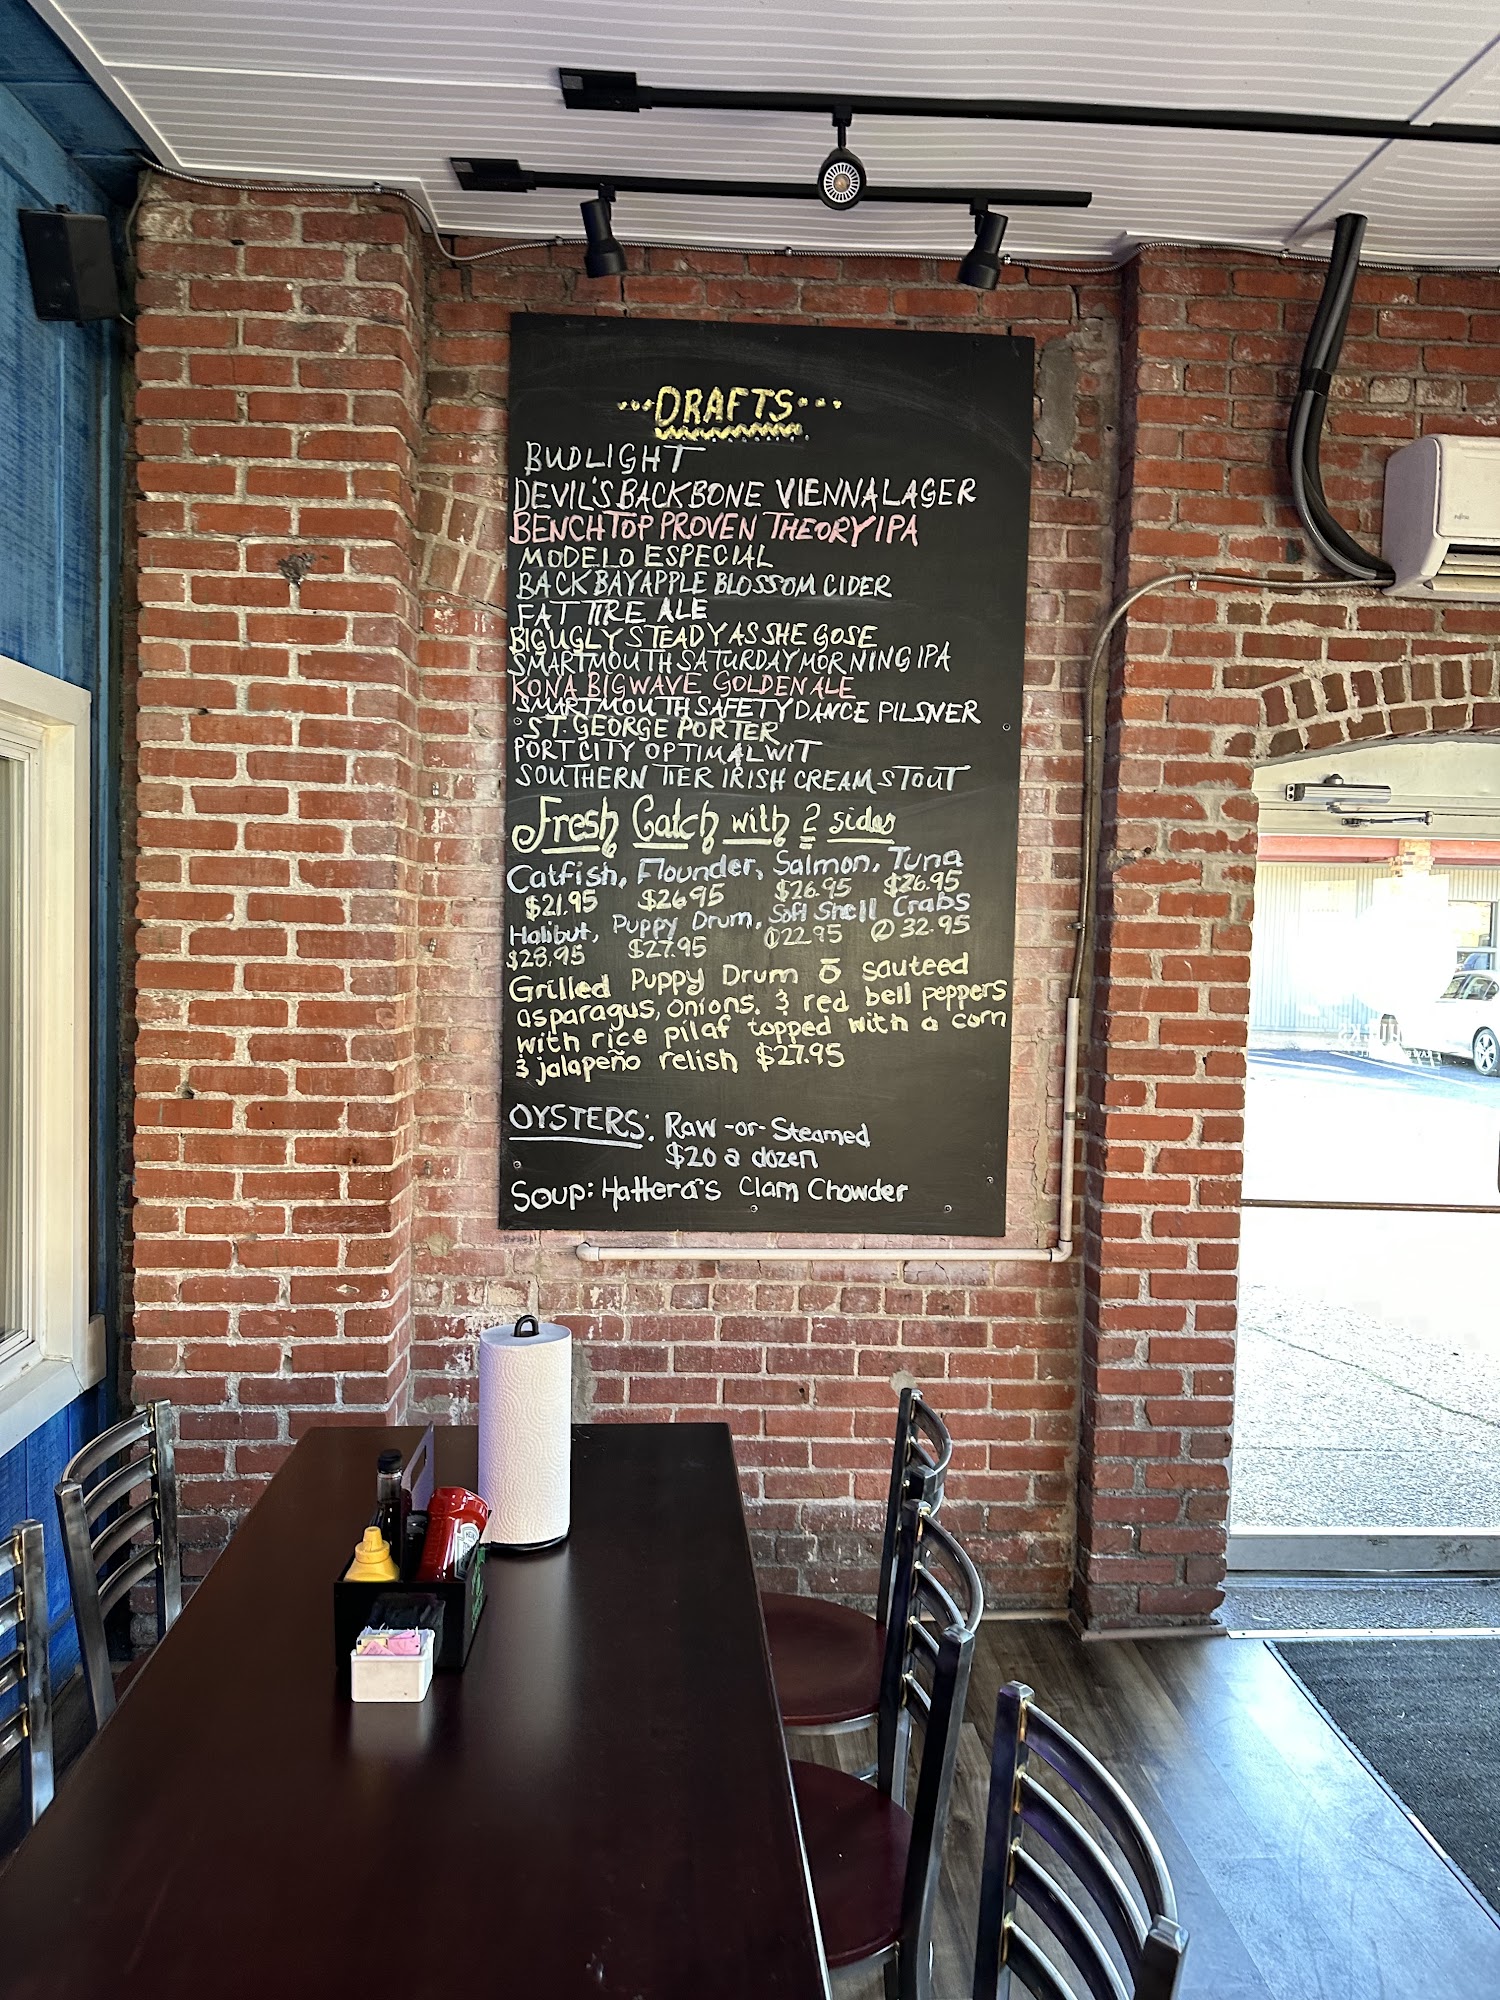 DRAFTS
BUDLIGHT
DEVIL'S BACKBONE VIENNA LAGER
BENCHTOP PROVEN THEORY IPA
MODELO ESPECIAL
BACK BAY APPLE BLOSSOM CIDER
FAT TIRE ALE
BIG UGLY STEADY AS SHE GOSE
SMARTMOUTH SATURDAY MORNING IPA
KONA BIG WAVE GOLDEN ALE
SMARTMOUTH SAFETY DANCE PILSNER
ST. GEORGE PORTER
PORT CITY OPTIMAL WIT
SOUTHERN TIER IRISH CREAM STOUT
Fresh Catch with 2 sides
Catfish, Flounder, Salmon, Tuna
$21.95 $26.95 $26.95 $26.95
Halibut, Puppy Drum, Soft Shell Crabs
$28.95 $27.95 ① 22.95 ② 32.95
Grilled Puppy Drum c̄ sauteed
asparagus, onions, & red bell peppers
with rice pilaf topped with a corn
& jalapeño relish $27.95
OYSTERS: Raw -or- Steamed
$20 a dozen
Soup: Hattera's Clam Chowder